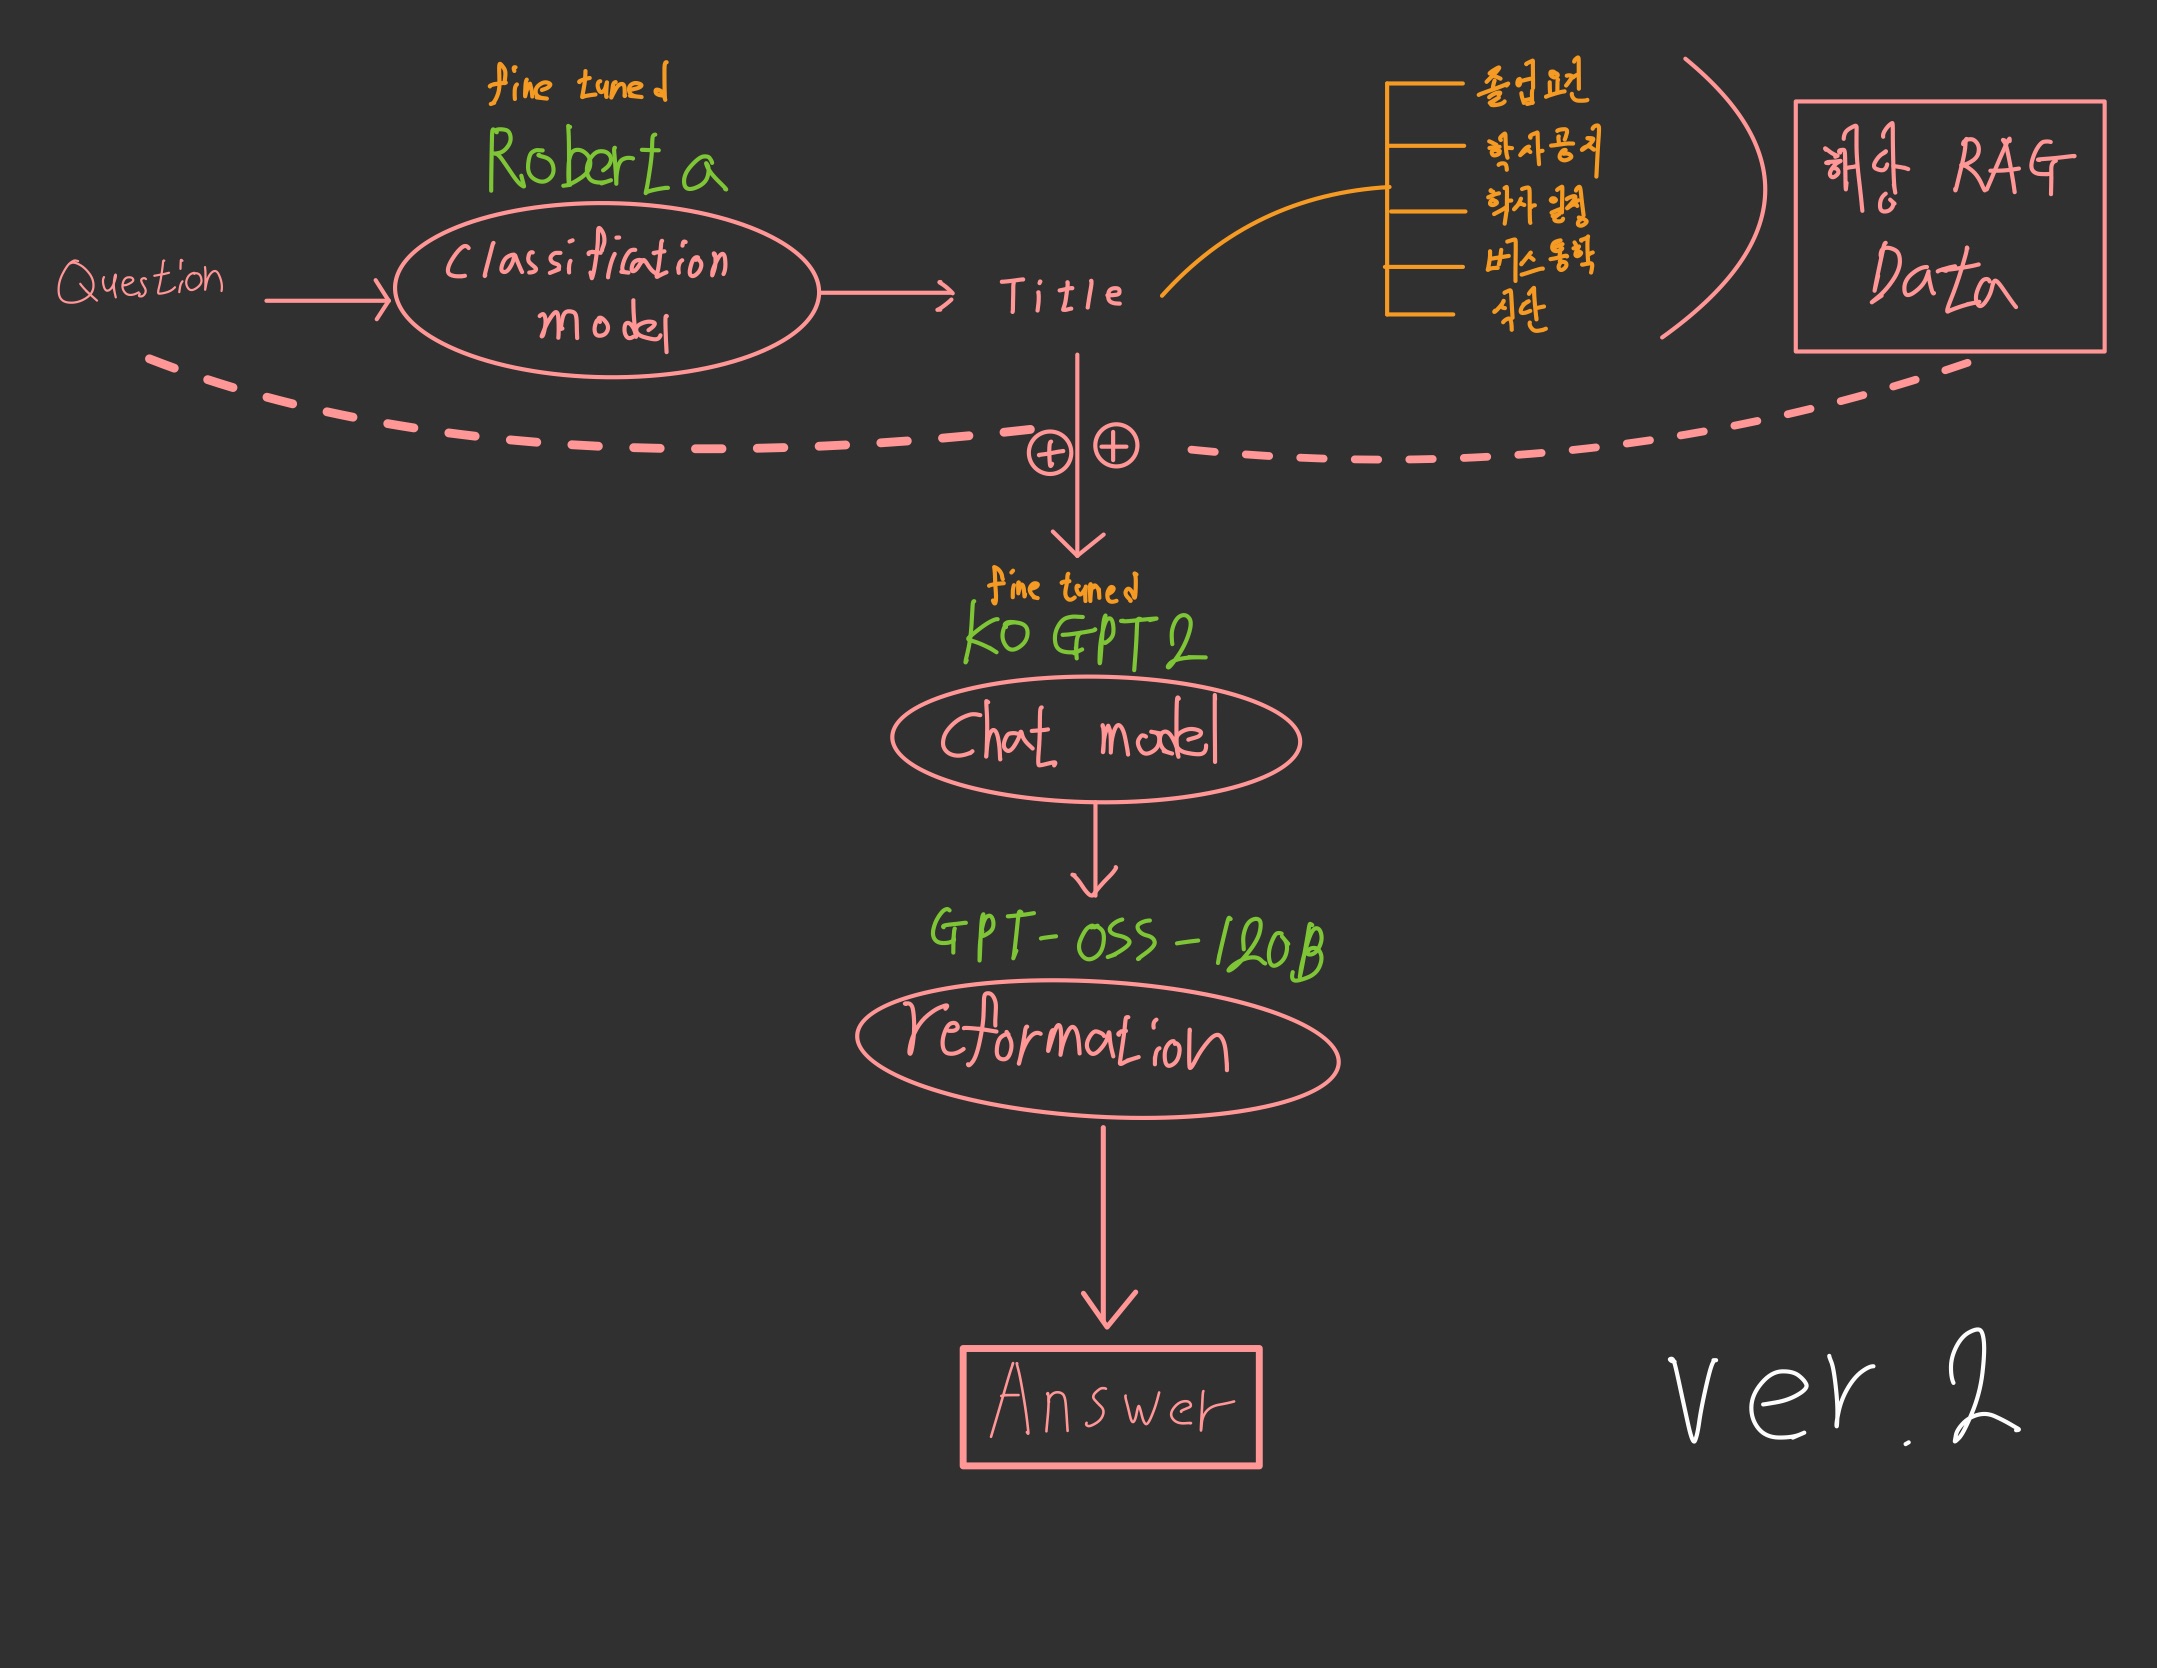 fine tuned
Roberta
Classification
model
Question
Title
졸업요건
학사공지
학사일정
버스통학
식단
해당 RAG
Data
fine tuned
KO GPT2
Chat model
GPT-OSS-120B
reformation
Answer
ver.2